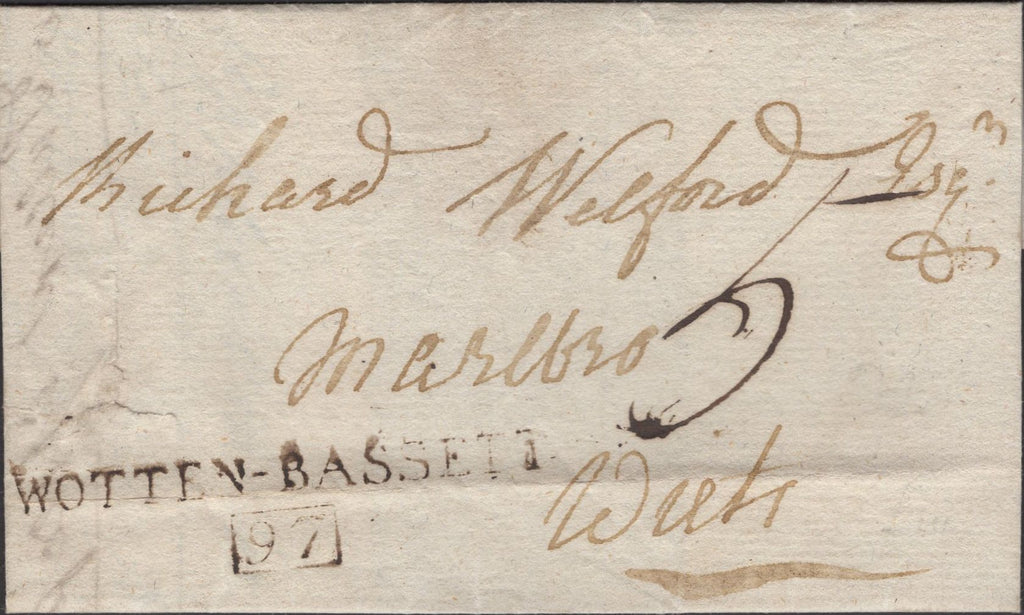 Richard Welford Esqr.
5
Marlbro
WOTTEN-BASSETT
Wilts
97